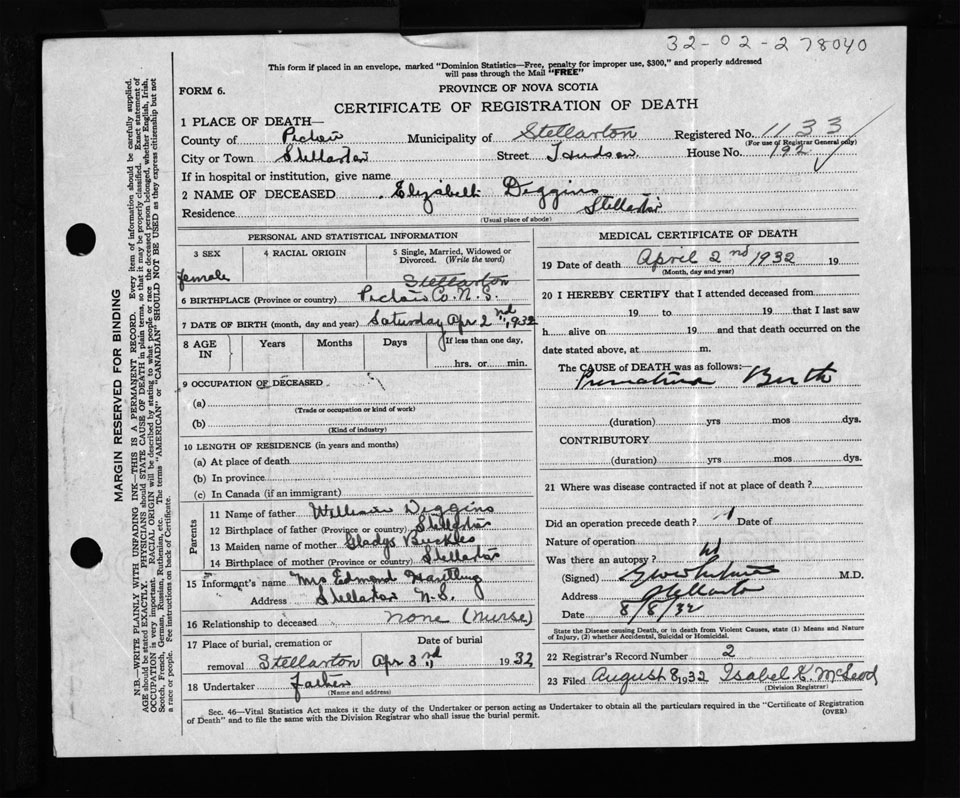 32-02-278040
This form if placed in an envelope, marked "Dominion Statistics—Free, penalty for improper use, $300," and properly addressed
will pass through the Mail "FREE"
FORM 6.
PROVINCE OF NOVA SCOTIA
CERTIFICATE OF REGISTRATION OF DEATH
1 PLACE OF DEATH—
County of Pictou Municipality of Stellarton Registered No. 1133
(For use of Registrar General only)
City or Town Stellarton Street Hudson House No. 192
If in hospital or institution, give name
2 NAME OF DECEASED Elizabeth Deggins
Residence Stellarton
(Usual place of abode)
PERSONAL AND STATISTICAL INFORMATION
3 SEX 4 RACIAL ORIGIN 5 Single, Married, Widowed or
Divorced. (Write the word)
female
Stellarton
6 BIRTHPLACE (Province or country) Pictou Co. N.S.
7 DATE OF BIRTH (month, day and year) Saturday Apr 2nd, 1932
8 AGE IN Years Months Days If less than one day,
hrs. or min.
9 OCCUPATION OF DECEASED
(a)
(Trade or occupation or kind of work)
(b)
(Kind of industry)
10 LENGTH OF RESIDENCE (in years and months)
(a) At place of death
(b) In province
(c) In Canada (if an immigrant)
Parents
11 Name of father William Deggins
12 Birthplace of father (Province or country) Stellarton
13 Maiden name of mother Gladys Buckles
14 Birthplace of mother (Province or country) Stellarton
15 Informant's name Mrs Edmond Hantling
Address Stellarton N.S.
16 Relationship to deceased none (Nurse)
17 Place of burial, cremation or Date of burial
removal Stellarton Apr 3rd 1932
18 Undertaker father
(Name and address)
MEDICAL CERTIFICATE OF DEATH
19 Date of death April 2nd 1932 19
(Month, day and year)
20 I HEREBY CERTIFY that I attended deceased from
19 to 19 that I last saw
h alive on 19 and that death occurred on the
date stated above, at m.
The CAUSE of DEATH was as follows:
Premature Birth
(duration) yrs mos dys.
CONTRIBUTORY
(duration) yrs mos dys.
21 Where was disease contracted if not at place of death?
Did an operation precede death? Date of
Nature of operation
Was there an autopsy?
(Signed) M.D.
Address Stellarton
Date 8/8/32
State the Disease causing Death, or in death from Violent Causes, state (1) Means and Nature
of Injury, (2) whether Accidental, Suicidal or Homicidal.
22 Registrar's Record Number 2
23 Filed August 8, 1932 Isabel K. McLeod
(Division Registrar)
Sec. 46—Vital Statistics Act makes it the duty of the Undertaker or person acting as Undertaker to obtain all the particulars required in the "Certificate of Registration
of Death" and to file the same with the Division Registrar who shall issue the burial permit.
(OVER)
MARGIN RESERVED FOR BINDING
N.B.—WRITE PLAINLY WITH UNFADING INK—THIS IS A PERMANENT RECORD. Every item of information should be carefully supplied.
AGE should be stated EXACTLY. PHYSICIANS should STATE CAUSE OF DEATH in plain terms, so that it may be properly classified. Exact statement of
OCCUPATION is very important. RACIAL ORIGIN will be described by stating to what people or race the deceased person belonged, whether English, Irish,
Scotch, French, German, Russian, Ruthenian, etc. The terms "AMERICAN" or "CANADIAN" SHOULD NOT BE USED as they express citizenship but not
a race or people. See instructions on back of Certificate.